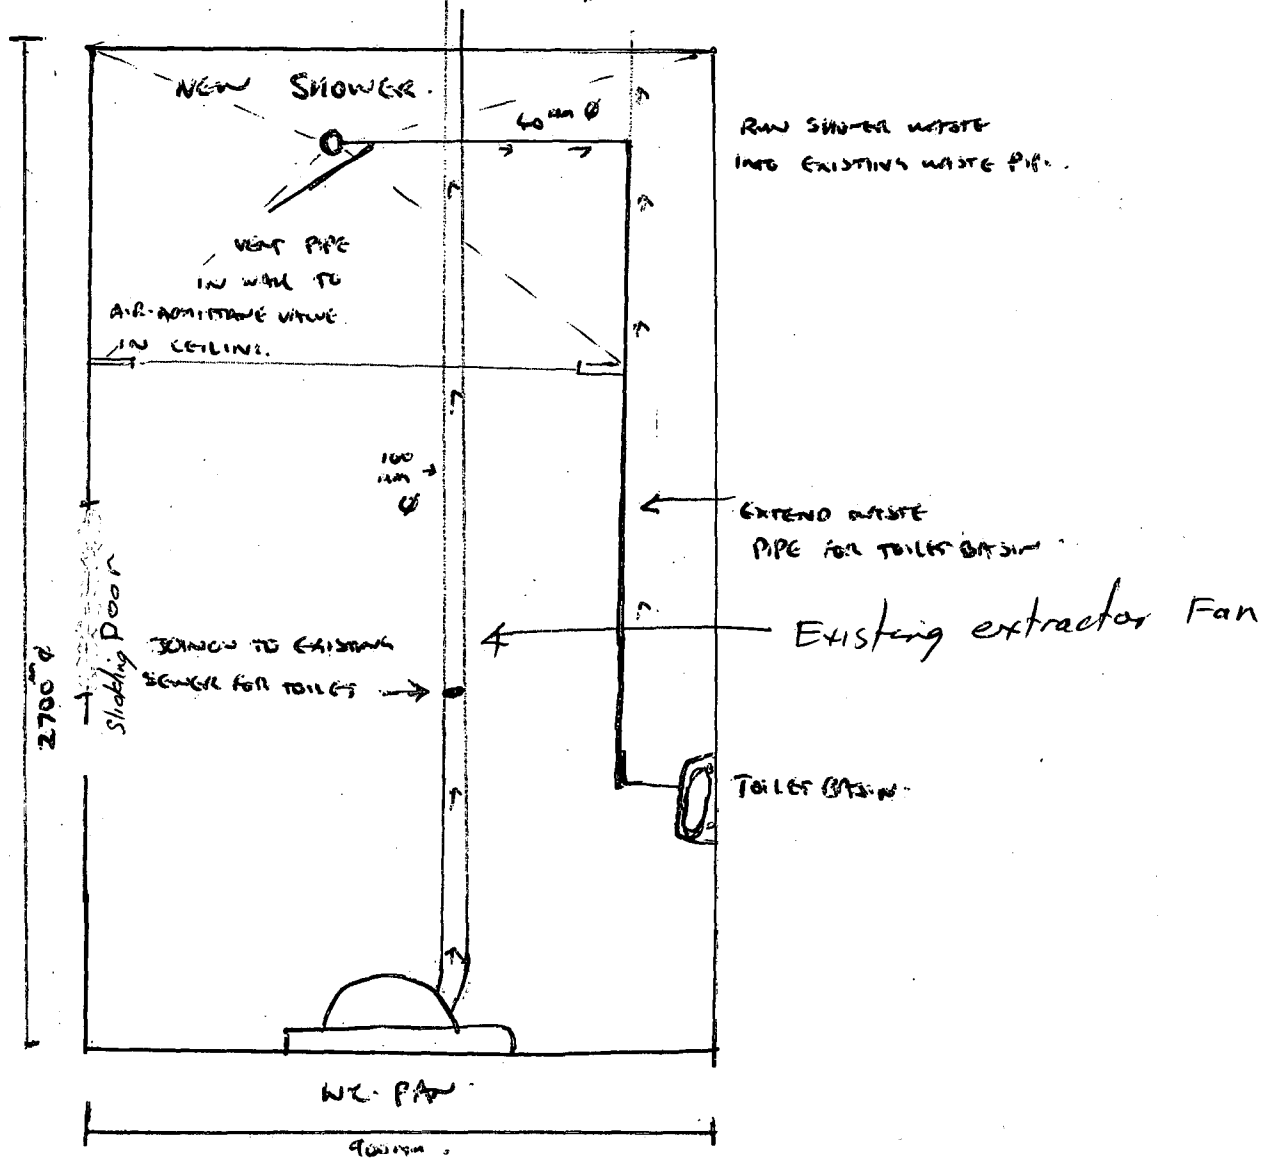 NEW SHOWER.
40mm Ø
RUN SHOWER WASTE
INTO EXISTING WASTE PIPE.
VENT PIPE
IN WALL TO
AIR-ADMITTANE VALVE
IN CEILING.
100
mm
Ø
EXTEND WASTE
PIPE FOR TOILET BASIN
Existing extractor Fan
JOINON TO EXISTING
SEWER FOR TOILET
Door
2700mm
TOILET BASIN.
WC. PAN.
900mm.